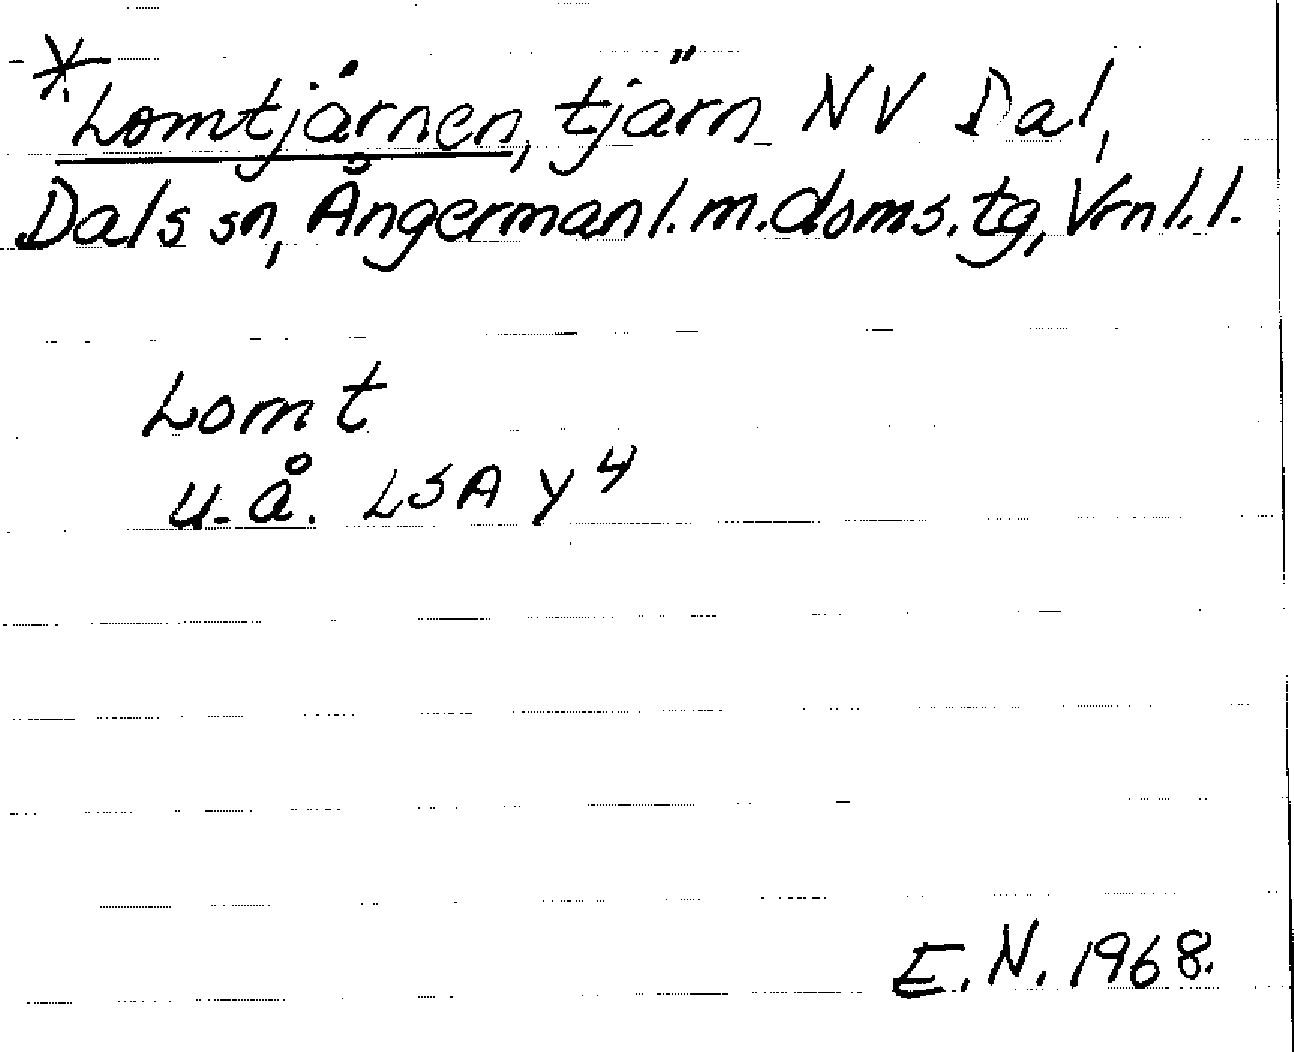 *Lomtjärnen, tjärn NV Dal,
Dals sn, Ångermanl. m. doms. tg, Vrnl. l.
Lomt
u. å. LSA Y 4
E. N. 1968.